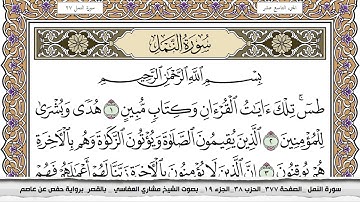 الجزء التاسع عشر
سورة النمل ٢٧
سُورَةُ النَّمْلِ
بِسْمِ اللَّهِ الرَّحْمَٰنِ الرَّحِيمِ
طسٓ ۚ تِلْكَ ءَايَٰتُ ٱلْقُرْءَانِ وَكِتَابٍ مُّبِينٍ ١ هُدًى وَبُشْرَىٰ
لِلْمُؤْمِنِينَ ٢ ٱلَّذِينَ يُقِيمُونَ ٱلصَّلَوٰةَ وَيُؤْتُونَ ٱلزَّكَوٰةَ وَهُم بِٱلْءَاخِرَةِ
هُمْ يُوقِنُونَ ٣ إِنَّ ٱلَّذِينَ لَا يُؤْمِنُونَ بِٱلْءَاخِرَةِ زَيَّنَّا لَهُمْ أَعْمَٰلَهُمْ فَهُمْ
سورة النمل . الصفحة ٣٧٧ . الحزب ٣٨ . الجزء ١٩ . بصوت الشيخ مشاري العفاسي . بالقصر برواية حفص عن عاصم